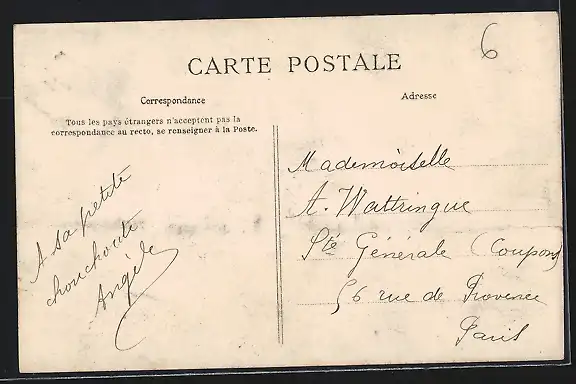 6
CARTE POSTALE
Correspondance
Adresse
Tous les pays étrangers n'acceptent pas la
correspondance au recto, se renseigner à la Poste.
A sa petite
chouchoute
Angèle
Mademoiselle
A. Wattringue
Sté Générale (Coupons)
56 rue de Provence
Paris